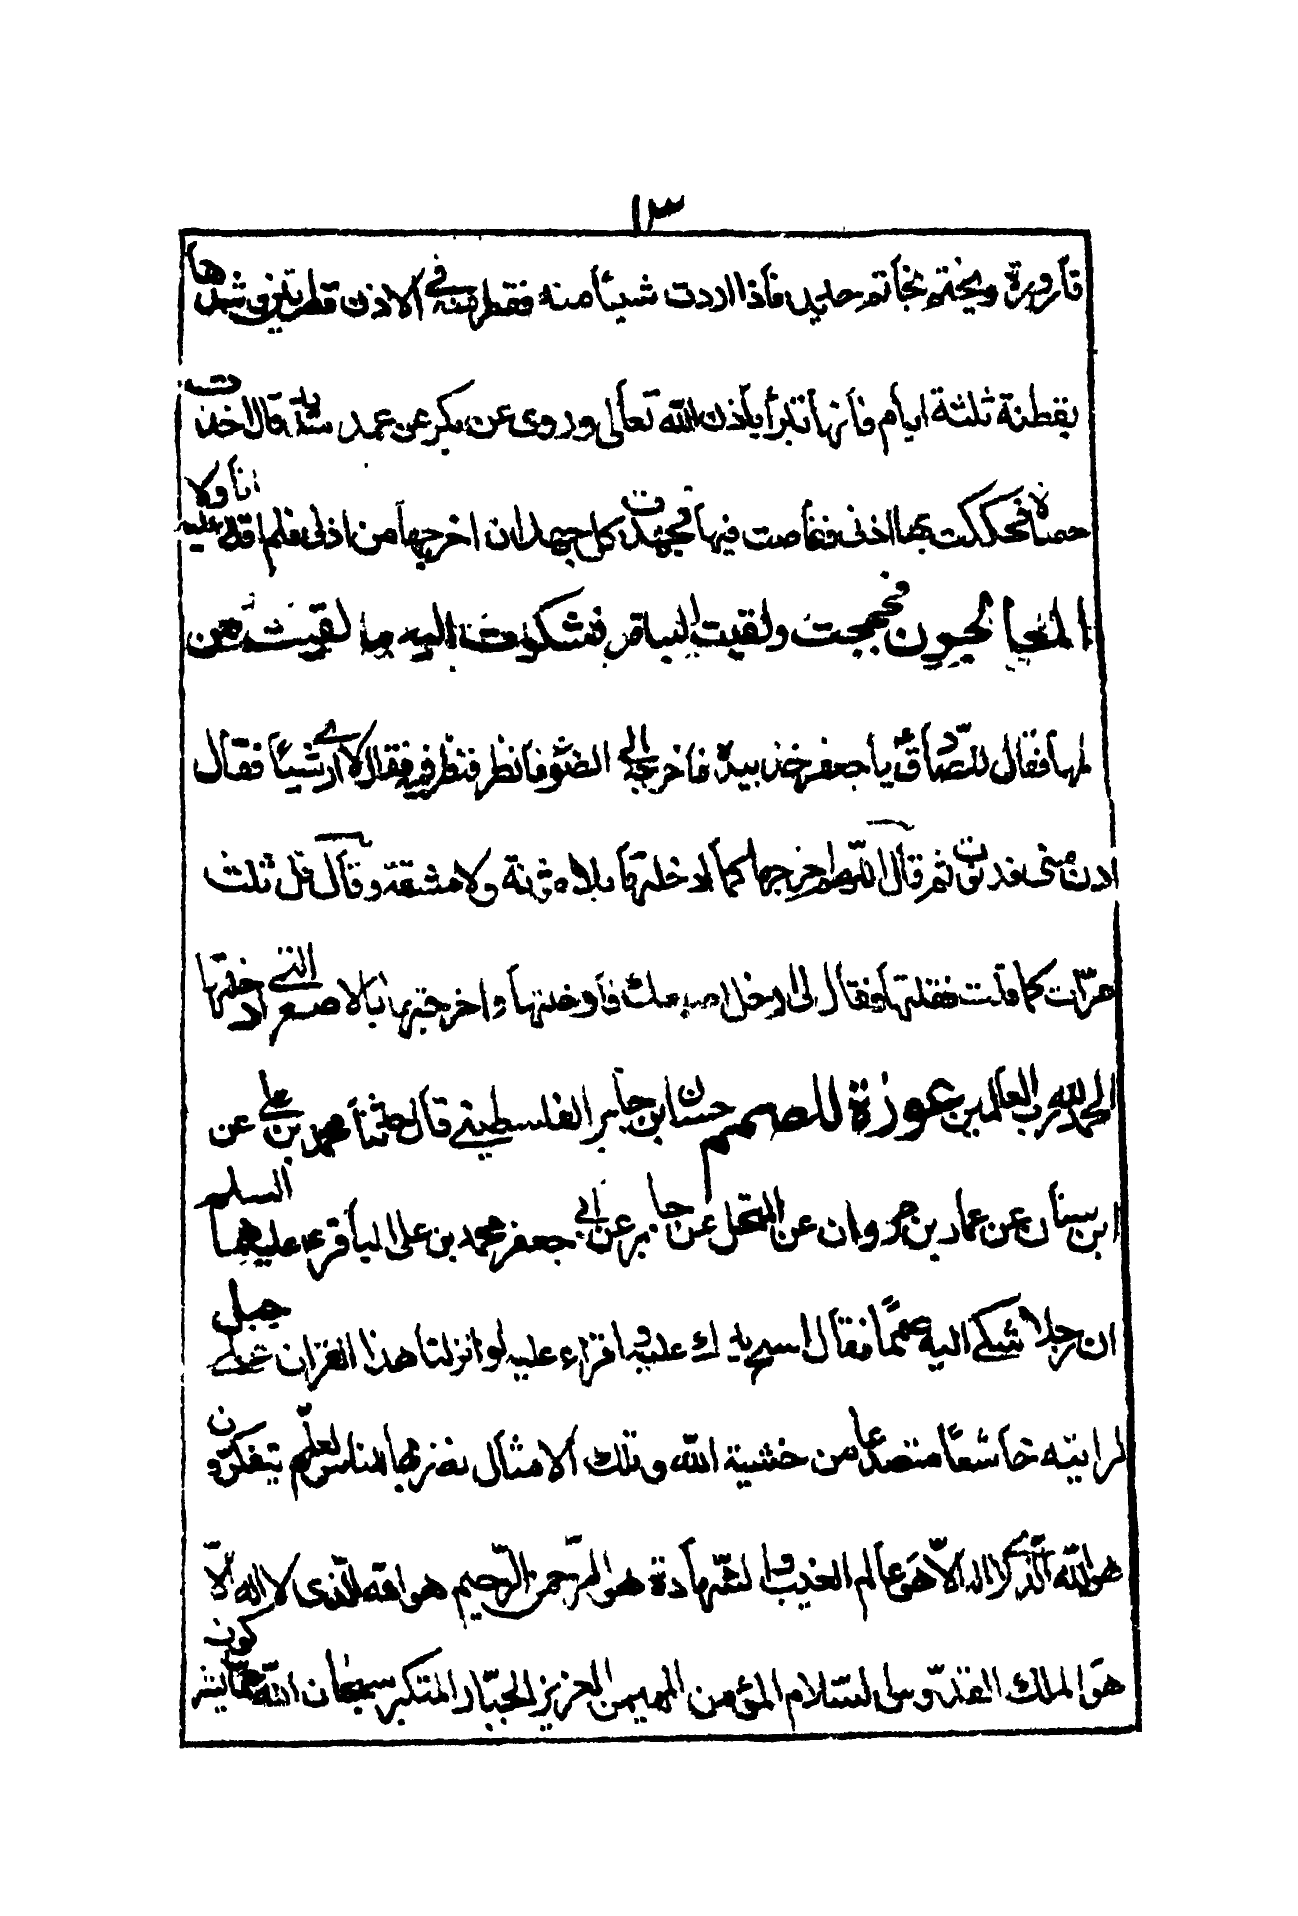 ١٣
قارورة ويختم بخاتم حديد فاذا اردت شيئا منه فقطر منه في الاذن قطرتين وشدها
بقطنة ثلثة ايام فانها تبرأ باذن الله تعالى وروى عن بكر عن عمه سدير قال اخذت
حصاة فحككت بها اذنى فغاصت فيها فجهدت كل جهد ان اخرجها من اذنى فلم اقدر عليه انا ولا
المعالجون فحججت ولقيت الباقر فشكوت اليه ما لقيت من
المها فقال للصادق يا جعفر خذ بيده فاخرجه الى الضوء فانظر فنظر فيه فقال لا ارى شيئا فقال
ادن منى فدنوت ثم قال اللهم اخرجها كما ادخلتها بلا مؤنة ولا مشقة وقال قل ثلث
مرات كما قلت فقلتها فقال لى ادخل اصبعك فادخلتها واخرجتها بالاصبع التي ادخلتها
الحمد لله رب العالمين عوذة للصمم حسان ابن جابر الفلسطيني قال حدثنا محمد بن علي عن
ابن سنان عن عمار بن مروان عن المنخل عن جابر عن ابي جعفر محمد بن على الباقر عليهما السلم
ان رجلا شكى اليه صمما فقال امسح يدك عليه واقراء عليه لو انزلنا هذا القران على جبل
لرايته خاشعا متصدعا من خشية الله وتلك الامثال نضربها للناس لعلهم يتفكرون
هو الله الذي لا اله الا هو عالم الغيب والشهادة هو الرحمن الرحيم هو الله الذى لا اله الا
هو الملك القدوس السلام المؤمن المهيمن العزيز الجبار المتكبر سبحان الله عما يشركون